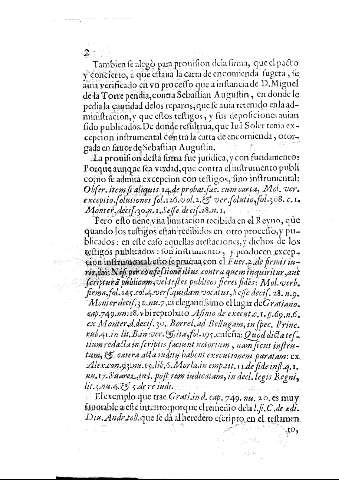 2
Tambien se alegò para prouision desta firma, que el pacto
y concierto, a que estaua la carta de encomienda sugeta, se
auia verificado en vn processo que a instancia de D. Miguel
de la Torre pendia, contra Sebastian Augustin, en donde le
pedia la cantidad de los reparos, que se auia retenido en la ad-
ministracion, y que estos testigos, y sus deposiciones auian
sido publicados. De donde resultaua, que Iuã Soler tenia ex-
cepcion instrumental contra la carta de encomienda, otor-
gada en fauor de Sebastian Augustin.
La prouision desta firma fue juridica, y con fundamento:
Porque aunque sea verdad, que contra el instrumento publi
co no se admita excepcion con testigos, sino instrumental:
Obser. item si aliquis 14. de probat. fac. cum carta, Mol. ver.
exceptio. solutiones fol. 126. vol. 2. & ver. solutio, fol. 308. c. 1.
Monter. decis. 30. n. 1. Sesse decis. 28. n. 1.
Pero esto tiene vna limitacion recibida en el Reyno, que
quando los testigos estan recibidos en otro processo, y pu-
blicados: en este caso aquellas atestaciones, y dichos de los
testigos publicados son instrumento, y producen excep-
cion instrumental
vel testes publicos fieres fides: Mol. verb.
firma, fol. 145. col. 4. vers. quidam vocatus, Sesse decis. 28. n. 9.
Monter decis. 32. nu. 7. es elegantissimo el lugar de Gratiano.
cap. 749. nu. 18. vbi reprobato Afino de execut. 0. 1. §. 69. n. 6.
ex Monter. d. decis. 30. Borrel. ad Bellugam, in spec. Princ.
rub. 41. in lit. B. in ver. & ita, fol. 195. exclesta: Quod dicta tes-
tium redacta in scriptis faciunt notorium, uam sicut instru-
tum, & catera acta iuditij habent executionem paratam: ex
Alex. con. 93. nu. 15. lib. 6. Morla in empor. tit. 11 de fide inst. q. 1.
nu. 17. Suarez, ant. post rem iudicatam, in decl. legis Regni,
lit. 3. nu. 4. & 5 de re iudi.
El exemplo que trae Grati. in d. cap. 749. nu. 20. es muy
fauorable a este intanto: porque el remedio de la l. fi. C. de edi.
Diu. Adr. toll. que se dà al heredero escripto, en el testamen
to,